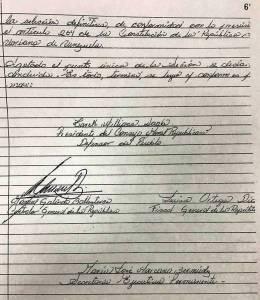 6
la solución definitiva de conformidad con lo previsto
el artículo 274 de la Constitución de la República
variana de Venezuela.
Agotado el punto único de la sesión se declara
concluida. Es todo, terminó, se leyó y conformes
Tarek Williams Saab
Presidente del Consejo Moral Republicano
Defensor del Pueblo
Manuel Galindo Ballesteros
Contralor General de la República
Luisa Ortega Díaz
Fiscal General de la República
María José Marcano
Secretaria Ejecutiva Permanente